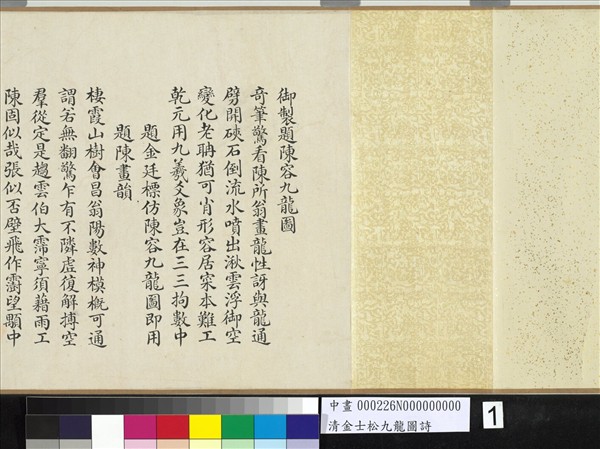 御製題陳容九龍圖
奇筆驚看陳所翁畫龍性訝與龍通
劈開硤石倒流水噴出湫雲浮御空
變化老聃猶可肖形容居寀本難工
乾元用九羲爻象豈在三三拘數中
題金廷標仿陳容九龍圖即用
題陳畫韻
棲霞山樹會昌翁陽數神模概可通
謂若無翻驚乍有不隣虛復解摶空
羣從定是趨雲伯大霈寧須藉雨工
陳固似哉張似否壁飛作霨望顯中
中畫 000226N000000000
清金士松九龍圖詩
1